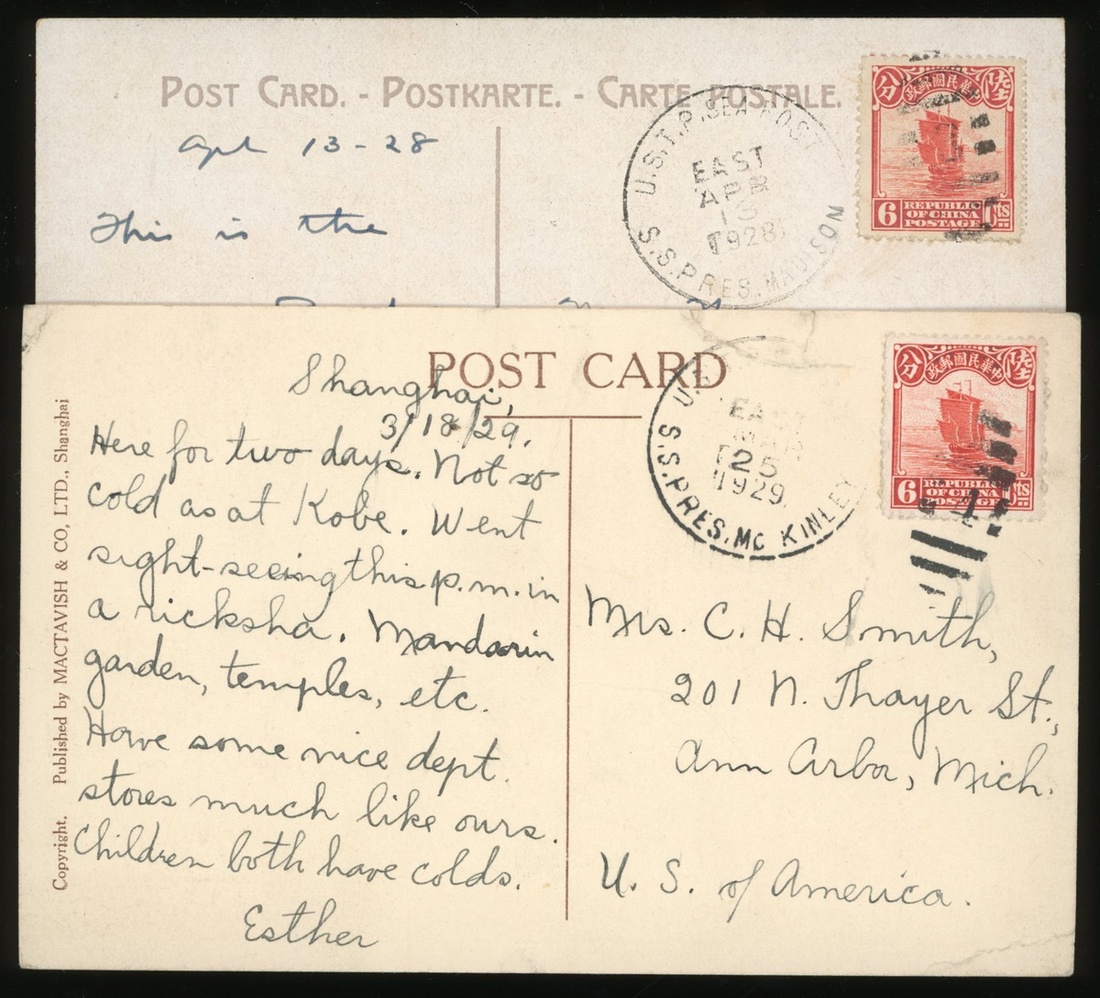 POST CARD. - POSTKARTE. - CARTE POSTALE.
Apl 13-28
This is the
U.S.T.P. SEA POST
EAST
APR
13
1928
S.S. PRES. MADISON
分 政郵國民華中 陸
6 REPUBLIC OF CHINA POSTAGE cts
POST CARD
Shanghai,
3/18/29.
Here for two days. Not so
cold as at Kobe. Went
sight-seeing this p.m. in
a ricksha. Mandarin
garden, temples, etc.
Have some nice dept.
stores much like ours.
Children both have colds.
Esther
Copyright. Published by MACTAVISH & CO, LTD., Shanghai
EAST
25
1929
S.S. PRES. Mc KINLEY
分 政郵國民華中 陸
6 REPUBLIC OF CHINA POSTAGE cts
Mrs. C. H. Smith,
201 N. Thayer St.,
Ann Arbor, Mich.
U. S. of America.